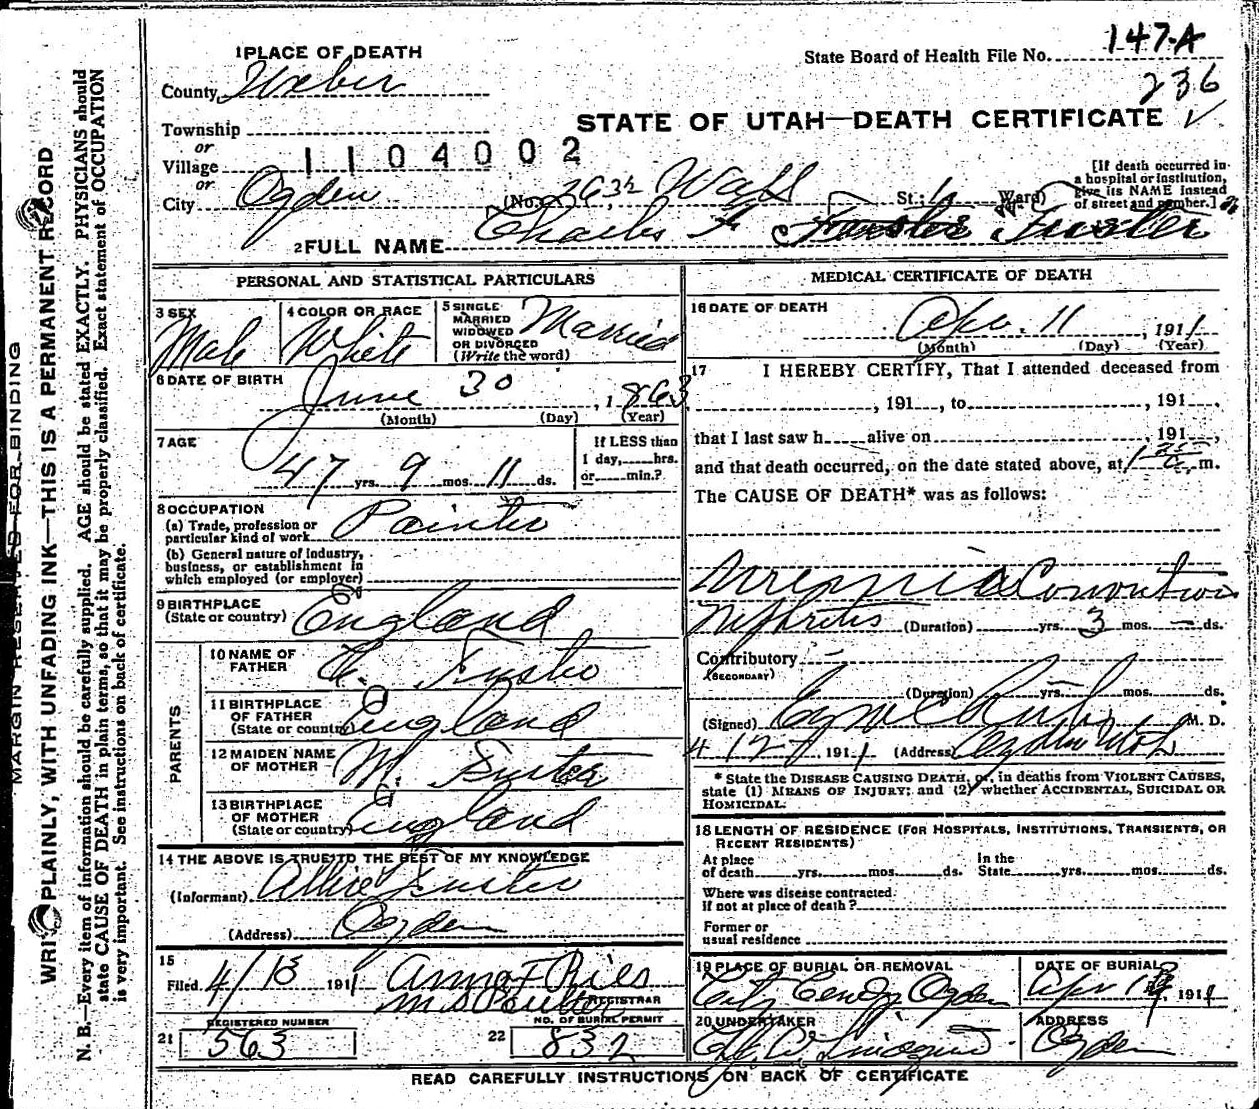 147-A
State Board of Health File No.
236
STATE OF UTAH—DEATH CERTIFICATE
1 PLACE OF DEATH
County Weber
Township
or
Village 1104002
or
City Ogden (No. 2632 Wall St; Ward)
[If death occurred in a hospital or institution, give its NAME instead of street and number.]
2 FULL NAME Charles F Fuster
PERSONAL AND STATISTICAL PARTICULARS
3 SEX Male
4 COLOR OR RACE White
5 SINGLE MARRIED WIDOWED OR DIVORCED (Write the word) Married
6 DATE OF BIRTH June 30, 1863
(Month) (Day) (Year)
7 AGE 47 yrs. 9 mos. 11 ds.
If LESS than 1 day, hrs. or min.?
8 OCCUPATION
(a) Trade, profession or particular kind of work Painter
(b) General nature of industry, business, or establishment in which employed (or employer)
9 BIRTHPLACE (State or country) England
PARENTS
10 NAME OF FATHER Fuster
11 BIRTHPLACE OF FATHER (State or country) England
12 MAIDEN NAME OF MOTHER M. Fuster
13 BIRTHPLACE OF MOTHER (State or country) England
14 THE ABOVE IS TRUE TO THE BEST OF MY KNOWLEDGE
(Informant) Allie Fuster
(Address) Ogden
15
Filed 4/13 1911 Anna F Ries
REGISTRAR
21 REGISTERED NUMBER 563
22 NO. OF BURIAL PERMIT 832
MEDICAL CERTIFICATE OF DEATH
16 DATE OF DEATH Apr. 11, 1911
(Month) (Day) (Year)
17 I HEREBY CERTIFY, That I attended deceased from
, 191 , to , 191 ,
that I last saw h alive on , 191 ,
and that death occurred, on the date stated above, at m.
The CAUSE OF DEATH* was as follows:
Uremia
Nephritis (Duration) yrs. 3 mos. — ds.
Contributory (SECONDARY)
(Duration) yrs. mos. ds.
(Signed) M. D.
4/12, 1911 (Address) Ogden Utah
* State the DISEASE CAUSING DEATH, or, in deaths from VIOLENT CAUSES,
state (1) MEANS OF INJURY; and (2) whether ACCIDENTAL, SUICIDAL OR
HOMICIDAL.
18 LENGTH OF RESIDENCE (FOR HOSPITALS, INSTITUTIONS, TRANSIENTS, OR
RECENT RESIDENTS)
At place of death yrs. mos. ds. In the State yrs. mos. ds.
Where was disease contracted.
If not at place of death?
Former or
usual residence
19 PLACE OF BURIAL OR REMOVAL City Cemty Ogden
DATE OF BURIAL Apr 1911
20 UNDERTAKER Lindquist
ADDRESS Ogden
READ CAREFULLY INSTRUCTIONS ON BACK OF CERTIFICATE
MARGIN RESERVED FOR BINDING
WRITE PLAINLY, WITH UNFADING INK—THIS IS A PERMANENT RECORD
N. B.—Every item of information should be carefully supplied. AGE should be stated EXACTLY. PHYSICIANS should
state CAUSE OF DEATH in plain terms, so that it may be properly classified. Exact statement of OCCUPATION
is very important. See instructions on back of certificate.